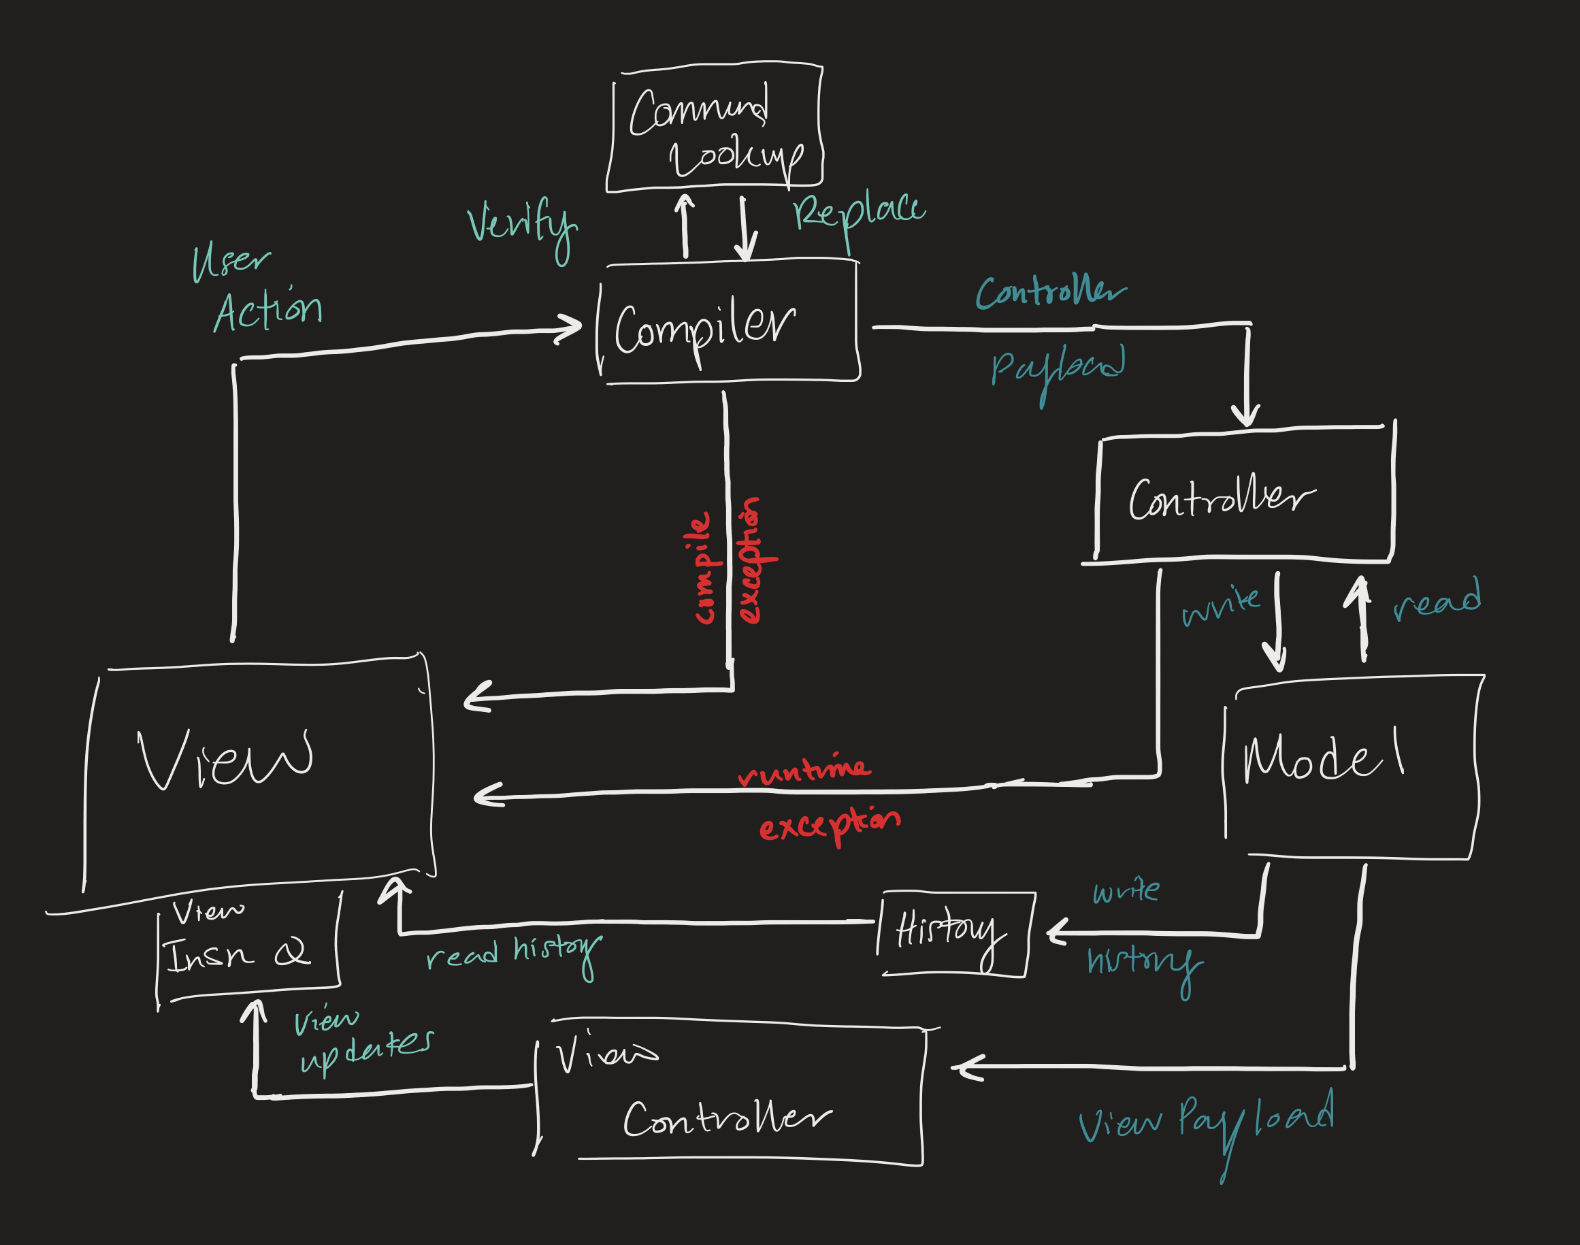 Command
Lookup
Verify
Replace
User
Action
Compiler
Controller
Payload
Controller
compile
exception
write
read
View
Model
runtime
exception
View
Insn Q
read history
History
write
history
View
updates
View
Controller
View Payload